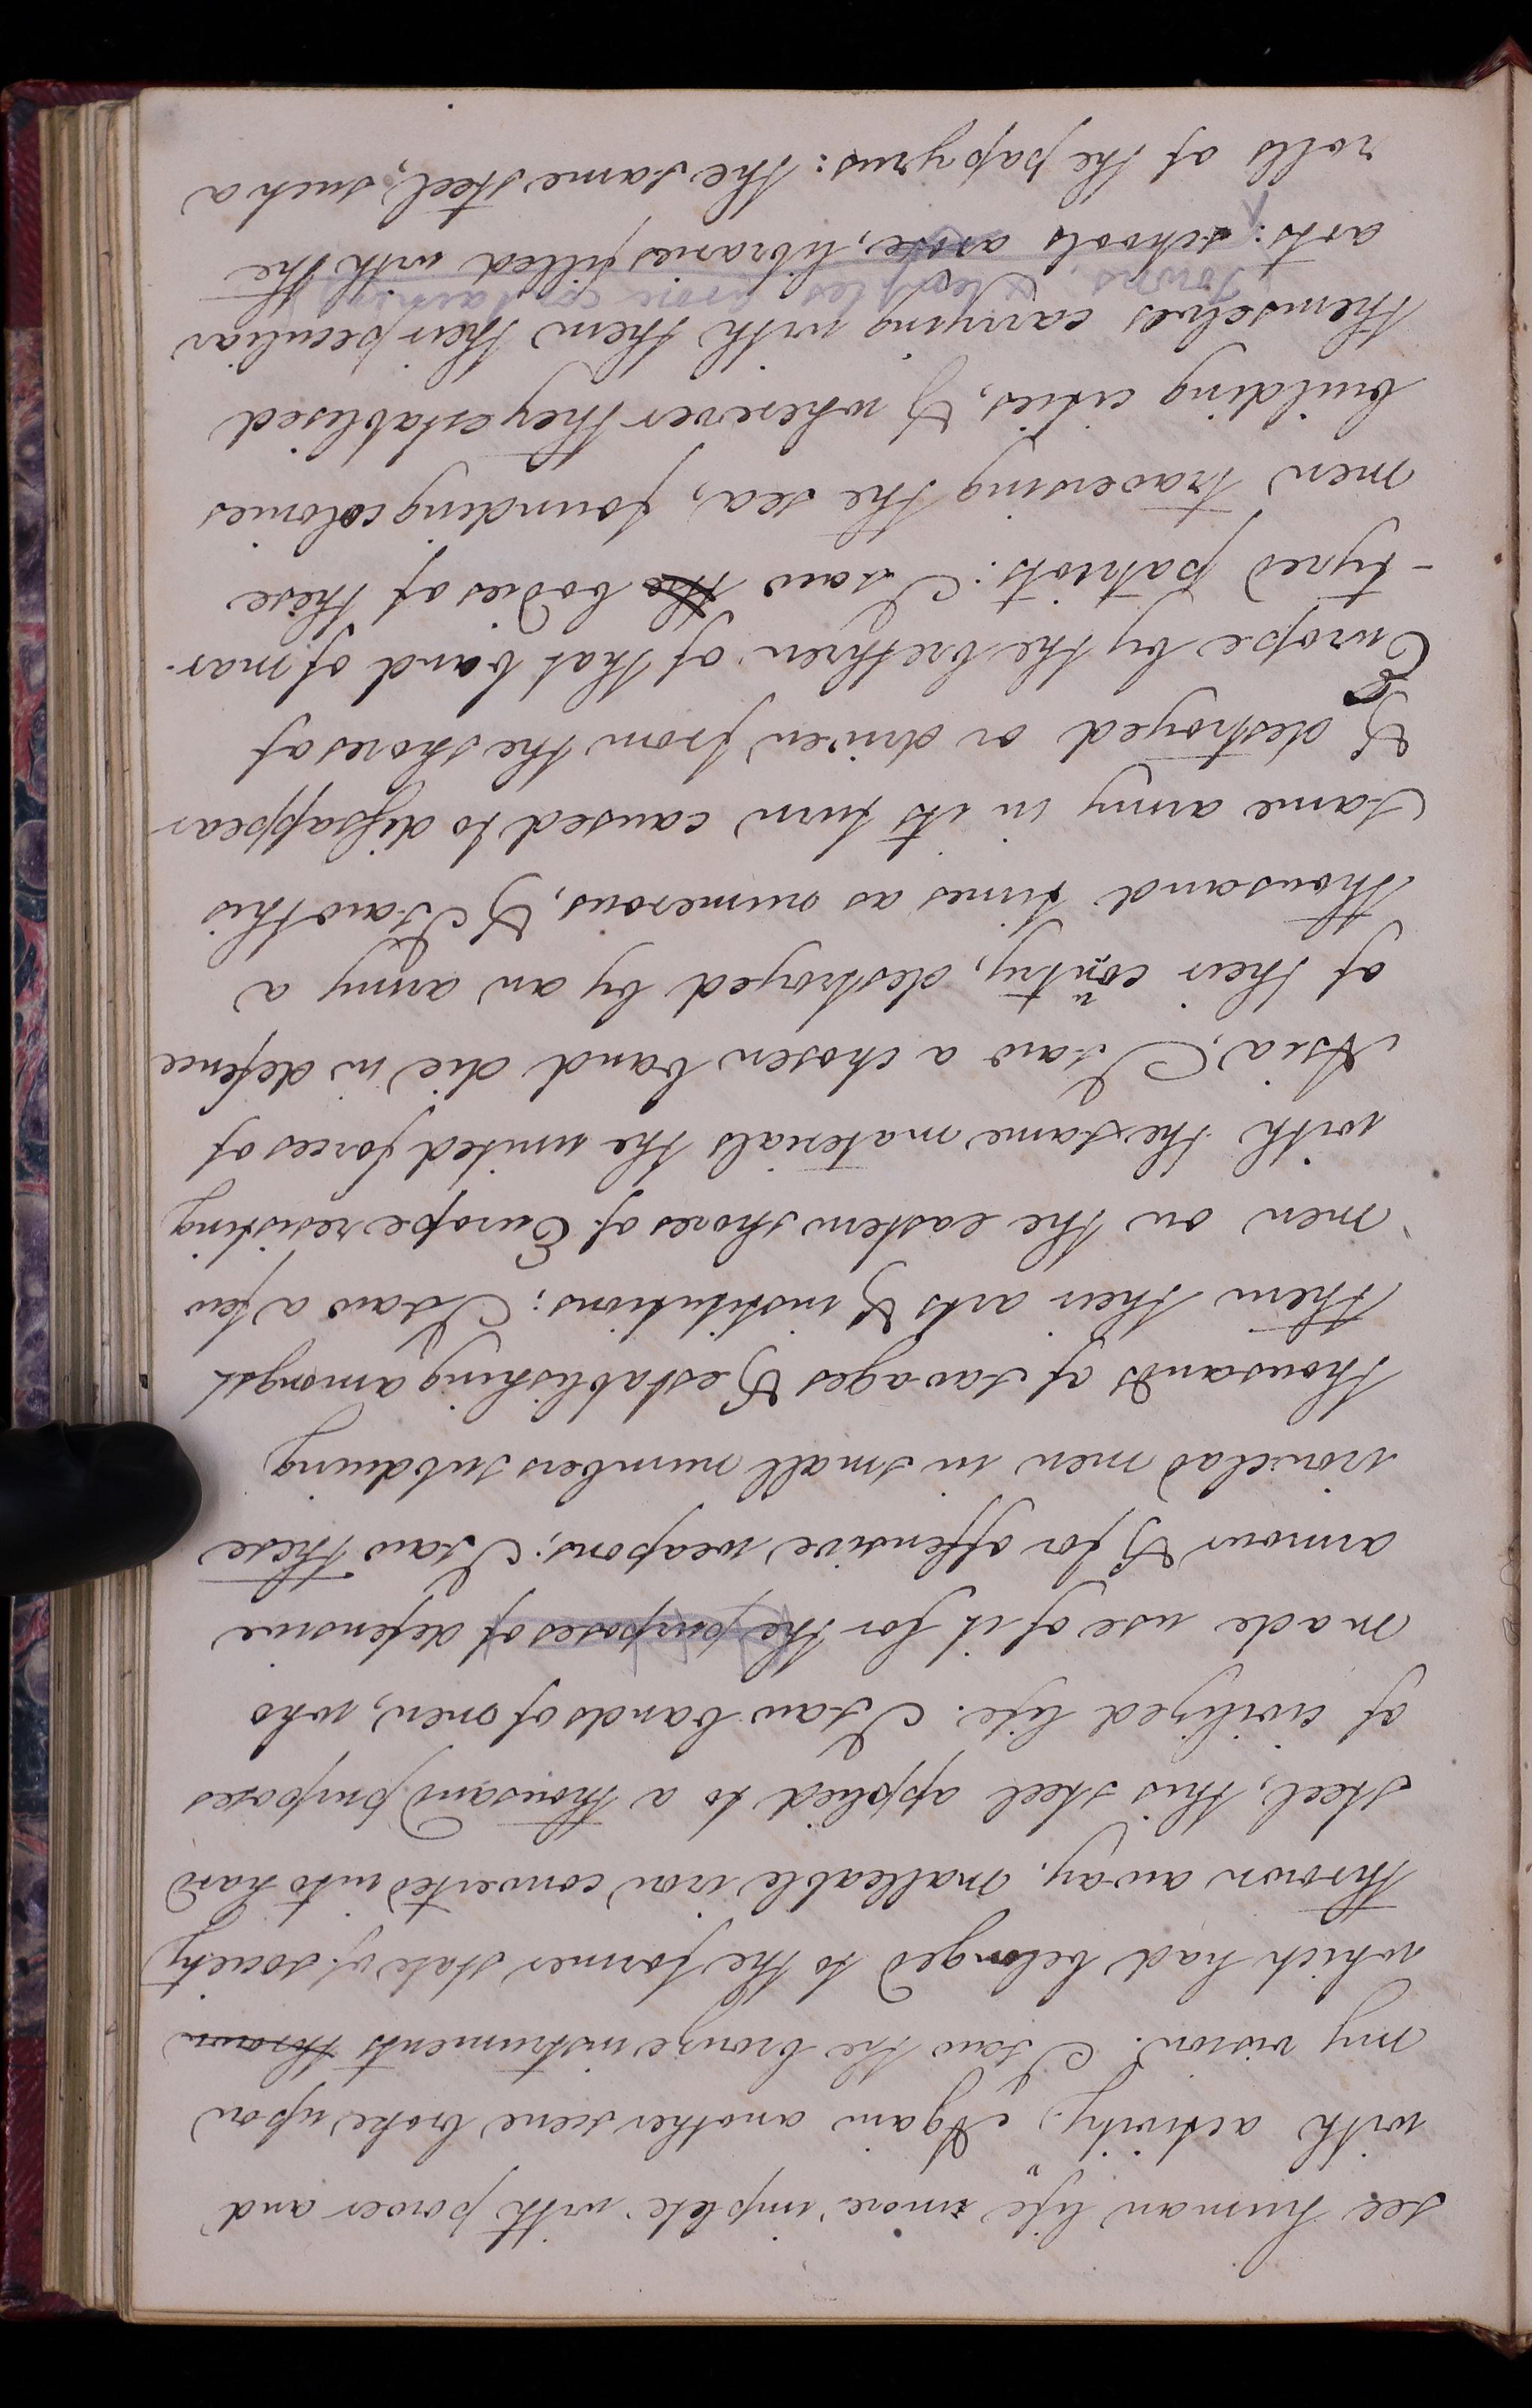 see human life more implete with power and
with activity. Again another scene broke upon
my vision. I saw the bronze instruments thrown
which had belonged to the former state of society
thrown away, malleable iron converted into hard
steel, this steel applied to a thousand purposes
of civilized life. I saw bands of men, who
made use of it for the purposes of defensive
armour & for offensive weapons; I saw these
ironclad men in small numbers subduing
thousands of savages & establishing amongst
them their arts & institutions; I saw a few
men on the eastern shores of Europe resisting
with the same materials the united forces of
Asia; I saw a chosen band die in defence
of their contry, destroyed by an army a
thousand times as numerous, & I saw this
same army in its turn caused to disappear
& destroyed or driven from the shores of
Europe by the brethren of that band of mar-
-tyred patriots: I saw the bodies of these
men traversing the sea, founding colonies
building cities, & wherever they establised
themselves carrying with them their peculiar
Towns, & temples arose containing
arts: schools arose, libraries filled with the
rolls of the papyrus: the same steel, such a